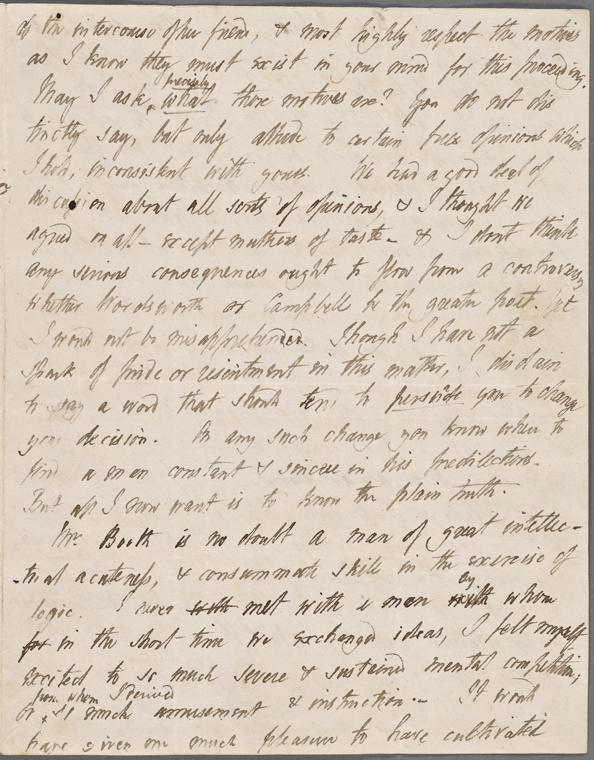 of the intercourse of her friend, & most highly respect the motives
as I know they must exist in your mind for this proceeding.
precisely
May I ask, what those motives are? You do not dis
tinctly say, but only allude to certain free opinions which
I hold, inconsistent with yours. We had a good deal of
discussion about all sorts of opinions, & I thought we
agreed on all - except matters of taste - & I dont think
any serious consequences ought to flow from a controversy
whether Wordsworth or Campbell be the greater poet. Yet
I would not be misapprehended. Though I have not a
spark of pride or resentment in this matter, I disdain
to say a word that should tend to persuade you to change
your decision. On any such change you know where to
find a man constant & sincere in his predilections.
But all I now want is to know the plain truth.
Mr. Booth is no doubt a man of great intellec-
-tual acuteness, & consummate skill in the exercise of
by
logic. I never with met with a man with whom
for in the short time we exchanged ideas, I felt myself
excited to so much severe & sustained mental competition,
from whom I derived
or so much amusement & instruction. - It would
have given me much pleasure to have cultivated